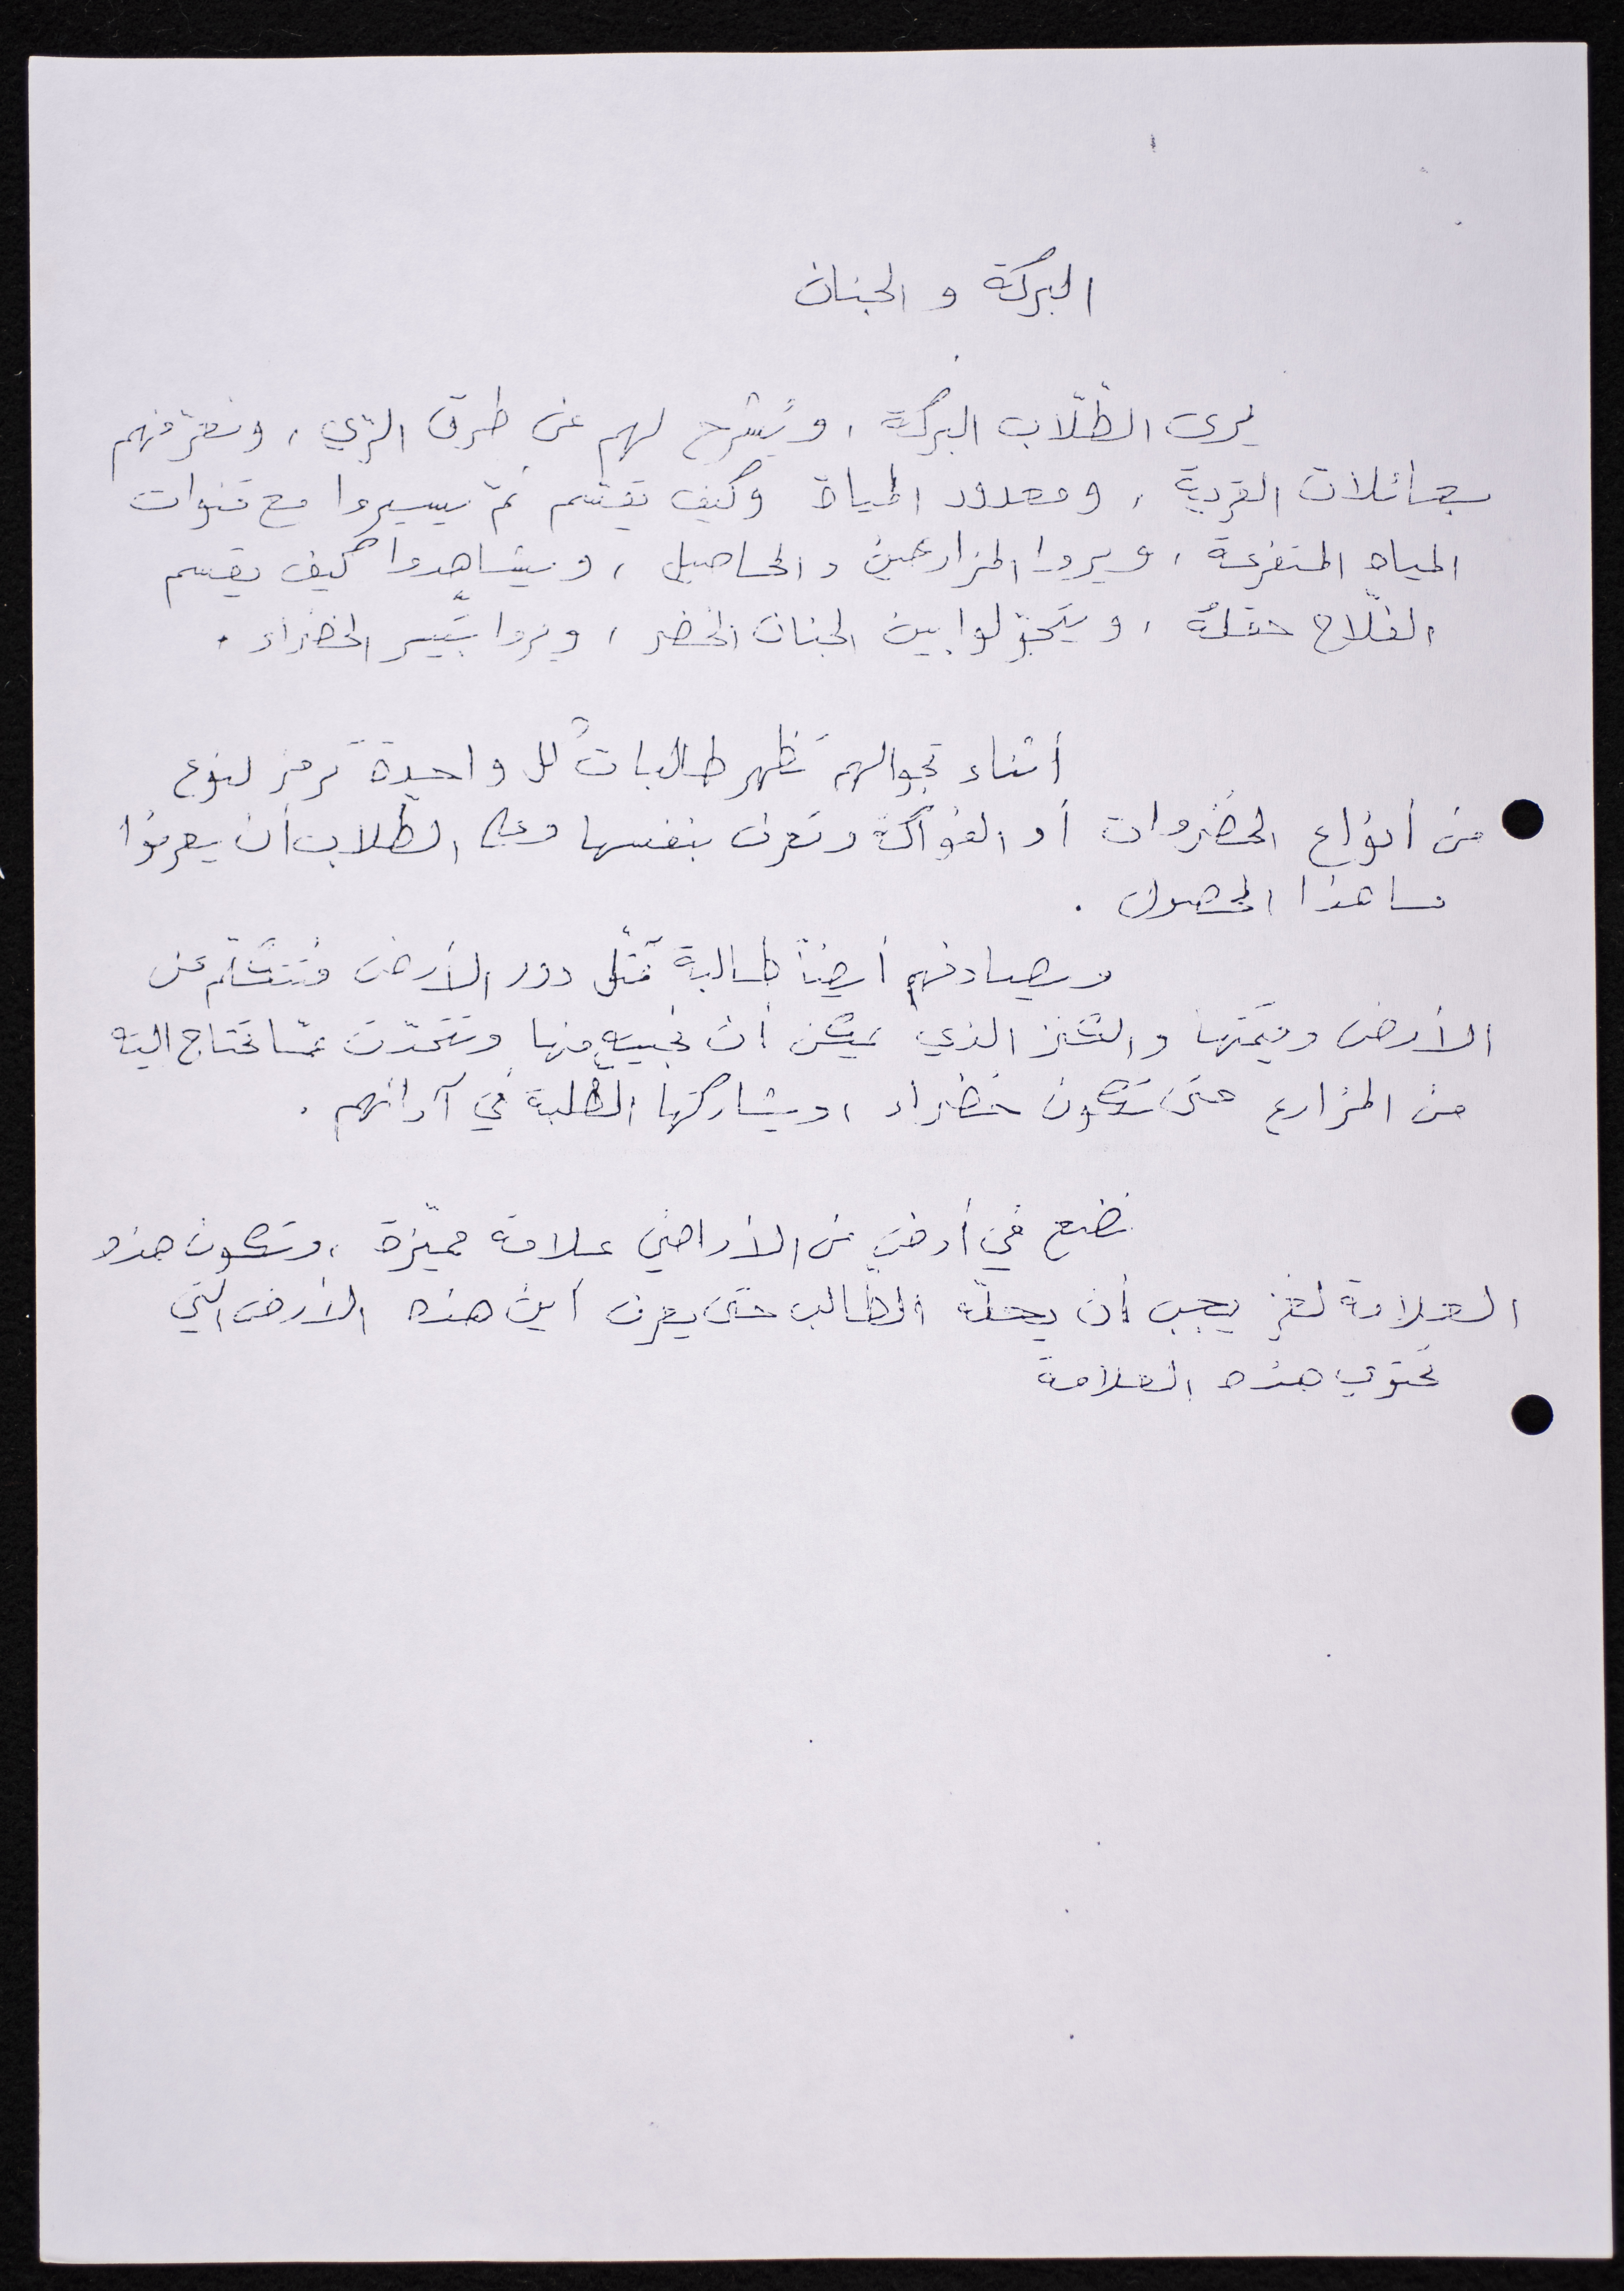 البركة و الجنان
يرى الطّلّاب البركة ، ويُشرح لهم عن طرق الرّي ، ونعرّفهم
بعائلات القرية ، ومعدود المياة وكيف تقسّم ثمّ يسيروا مع قنوات
المياه المتفرعة ، ويروا المزارعين والمحاصيل ، ويشاهدوا كيف يقسم
الفلّاح حقلهُ ، ويتجوّلوا بين الجنان الخضر ، ويروا بتّير الخضراء .
أثناء تجوالهم تظهر طالباتٌ كل واحدة ترمز لنوع
من أنواع الخضروات أو الفواكة وتعرف بنفسها وعلى الطّلاب أن يعرفوا
ما هذا المحصول .
ويصادفهم أيضاً طالبة تمثّل دور الأرض فتتكلّم عن
الأرض وقيمتها والكنز الذي يمكن أن نجنيه منها وتتحدّث عمّا تحتاج اليه
من المزارع حتى تكون خضراء ، ويشاركها الطّلبة في آرائهم .
نضع في أرض من الأراضي علامة مميّزة ، وتكون هذه
العلامة لغز يجب أن يحلّه الطّالب حتى يعرف أين هذه الأرض التي
تحتوي هذه العلامة